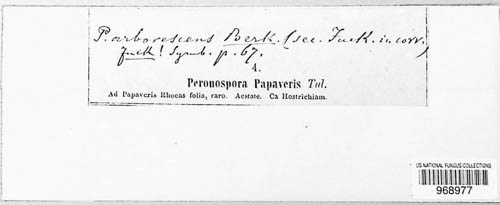 P. arborescens Berk. (sec. Fuck. in corr.)
Fuck! Symb. p. 67.
4.
Peronospora Papaveris Tul.
Ad Papaveris Rhoeas folia, raro. Aestate. Ca Hostrichiam.
US NATIONAL FUNGUS COLLECTIONS
968977